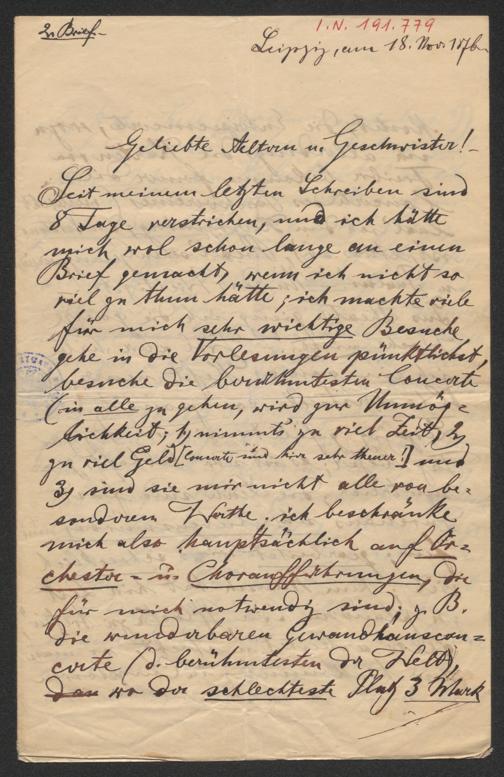 2. Brief.-
I.N. 191.779
Leipzig, am 18. Nov. 1876.
Geliebte Aeltern u. Geschwister!-
Seit meinem letzten Schreiben sind
8 Tage verstrichen, und ich hätte
mich wol schon lange an einen
Brief gemacht, wenn ich nicht so
viel zu thun hätte; ich machte viele
für mich sehr wichtige Besuche
gehe in die Vorlesungen pünktlichst,
besuche die berühmtesten Concerte
(in alle zu gehen, wird zur Unmög-
lichkeit; 1) nimmts zu viel Zeit, 2)
zu viel Geld [Concerte sind hier sehr theuer!] und
3) sind sie mir nicht alle von be-
sonderem Werthe. ich beschränke
mich also hauptsächlich auf Or-
chester- u. Choraufführungen, die
für mich notwendig sind; z. B.
die wunderbaren Gewandhauscon-
certe (d. berühmtesten der Welt),
wo der schlechteste Platz 3 Mark